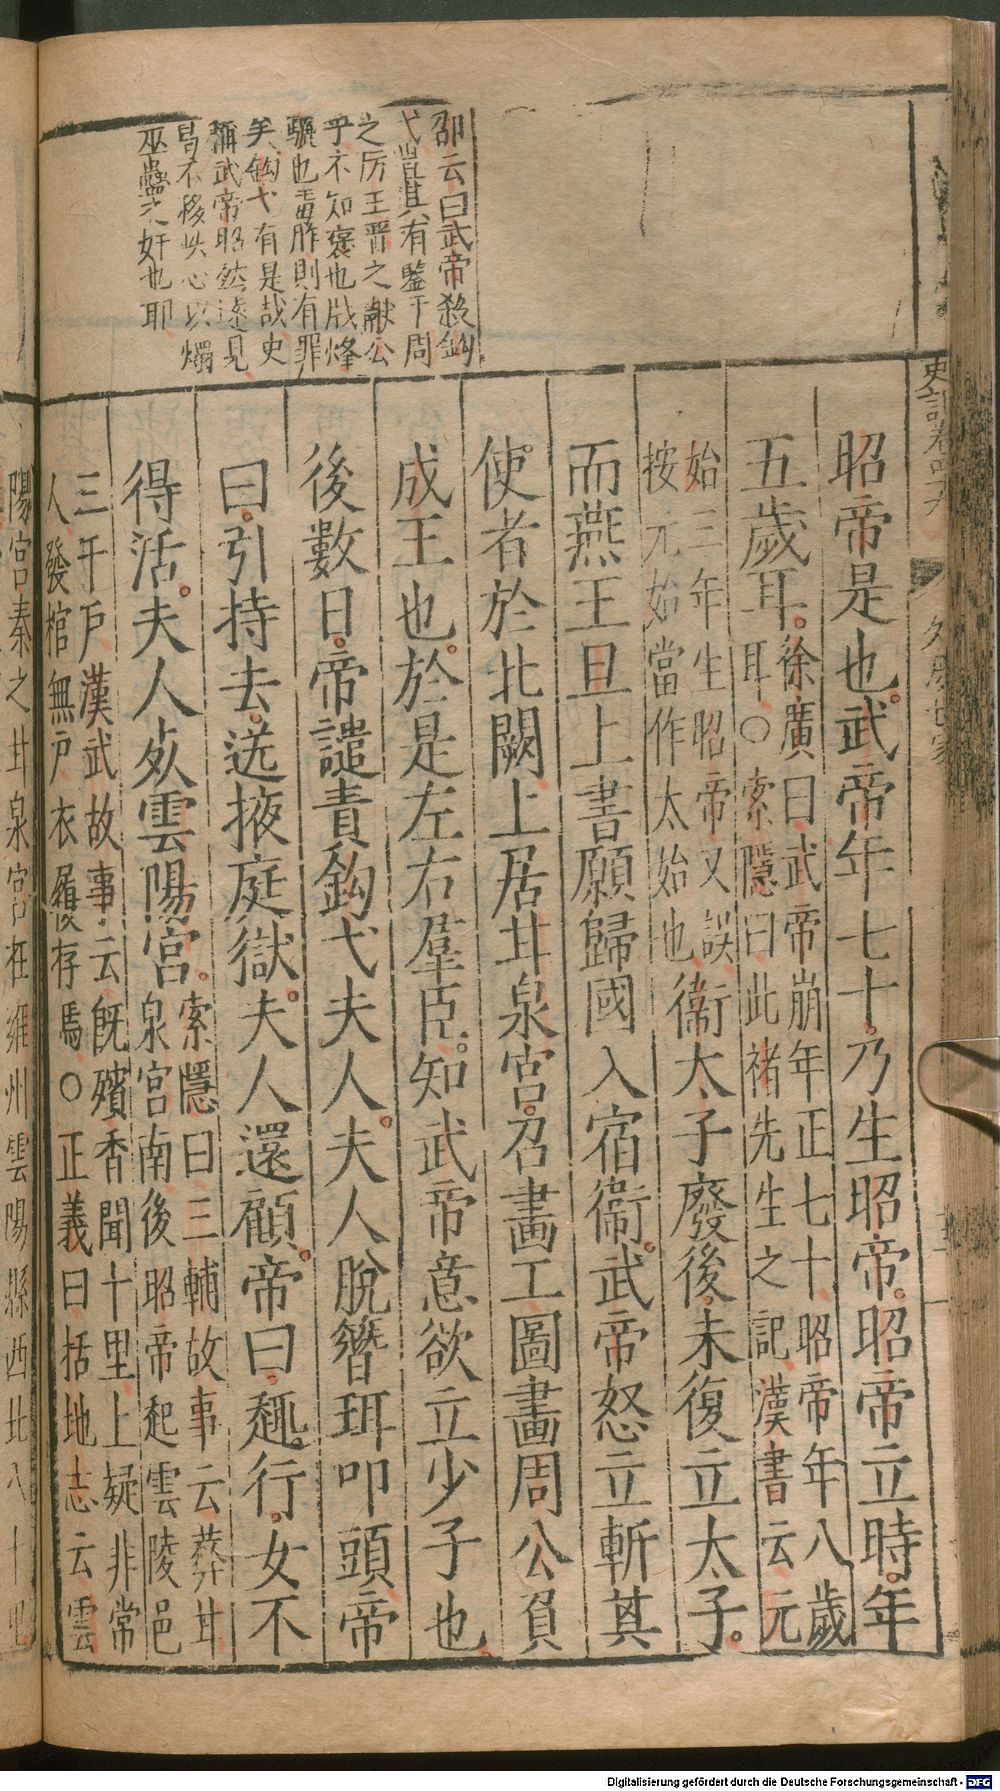 邵云曰武帝殺鉤
弋豈其有鑒于周
之厉王晋之献公
乎不知褒也戲烽
驪也毒胙則有罪
矣鈎弋有是哉史
稱武帝昭然遠見
曷不移此心以燭
巫蠱之奸也耶
史記卷四十九
外戚世家
昭帝是也武帝年七十乃生昭帝昭帝立時年
五歲耳徐廣曰武帝崩年正七十昭帝年八歲
耳○索隱曰此褚先生之記漢書云元
始三年生昭帝又誤
按元始當作太始也
衞太子廢後未復立太子
而燕王旦上書願歸國入宿衞武帝怒立斬其
使者於北闕上居甘泉宮召畫工圖畫周公負
成王也於是左右羣臣知武帝意欲立少子也
後數日帝譴責鈎弋夫人夫人脫簪珥叩頭帝
曰引持去送掖庭獄夫人還顧帝曰趣行女不
得活夫人死雲陽宮索隱曰三輔故事云葬甘
泉宮南後昭帝起雲陵邑
三千戶漢武故事云旣殯香聞十里上疑非常
人發棺無尸衣履存焉○正義曰括地志云雲
陽宮秦之甘泉宮在雍州雲陽縣西北八十里
Digitalisierung gefördert durch die Deutsche Forschungsgemeinschaft - DFG